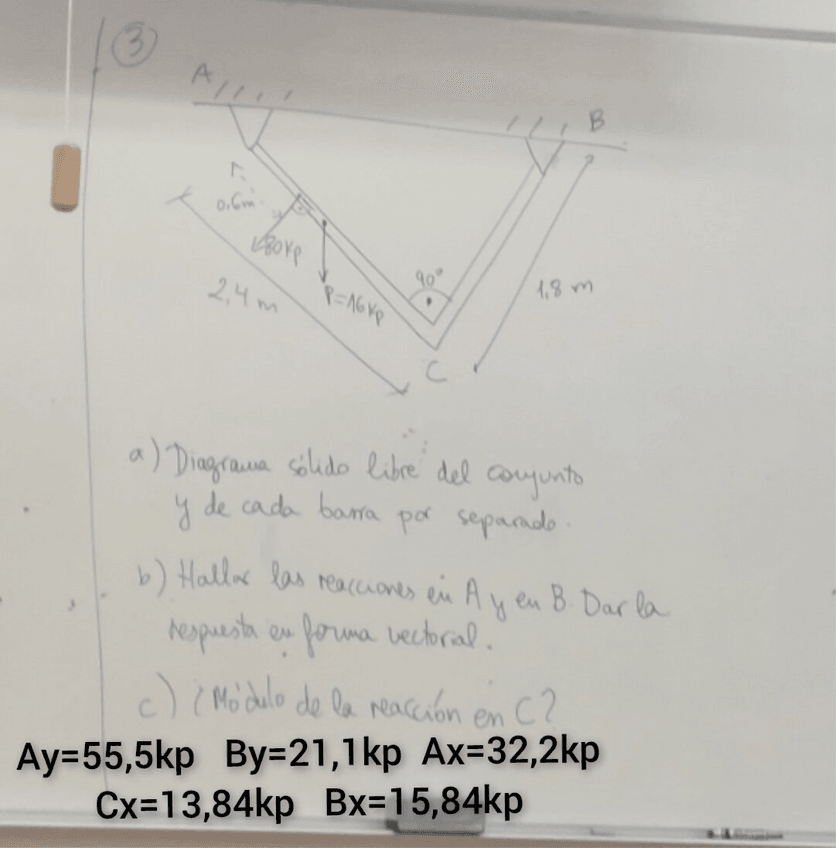 3
A
B
0,6m
80 kp
P=16 kp
90°
2,4 m
1,8 m
C
a) Diagrama sólido libre del conjunto
y de cada barra por separado.
b) Hallar las reacciones en A y en B. Dar la
respuesta en forma vectorial.
c) ¿Módulo de la reacción en C?
Ay=55,5kp By=21,1kp Ax=32,2kp
Cx=13,84kp Bx=15,84kp